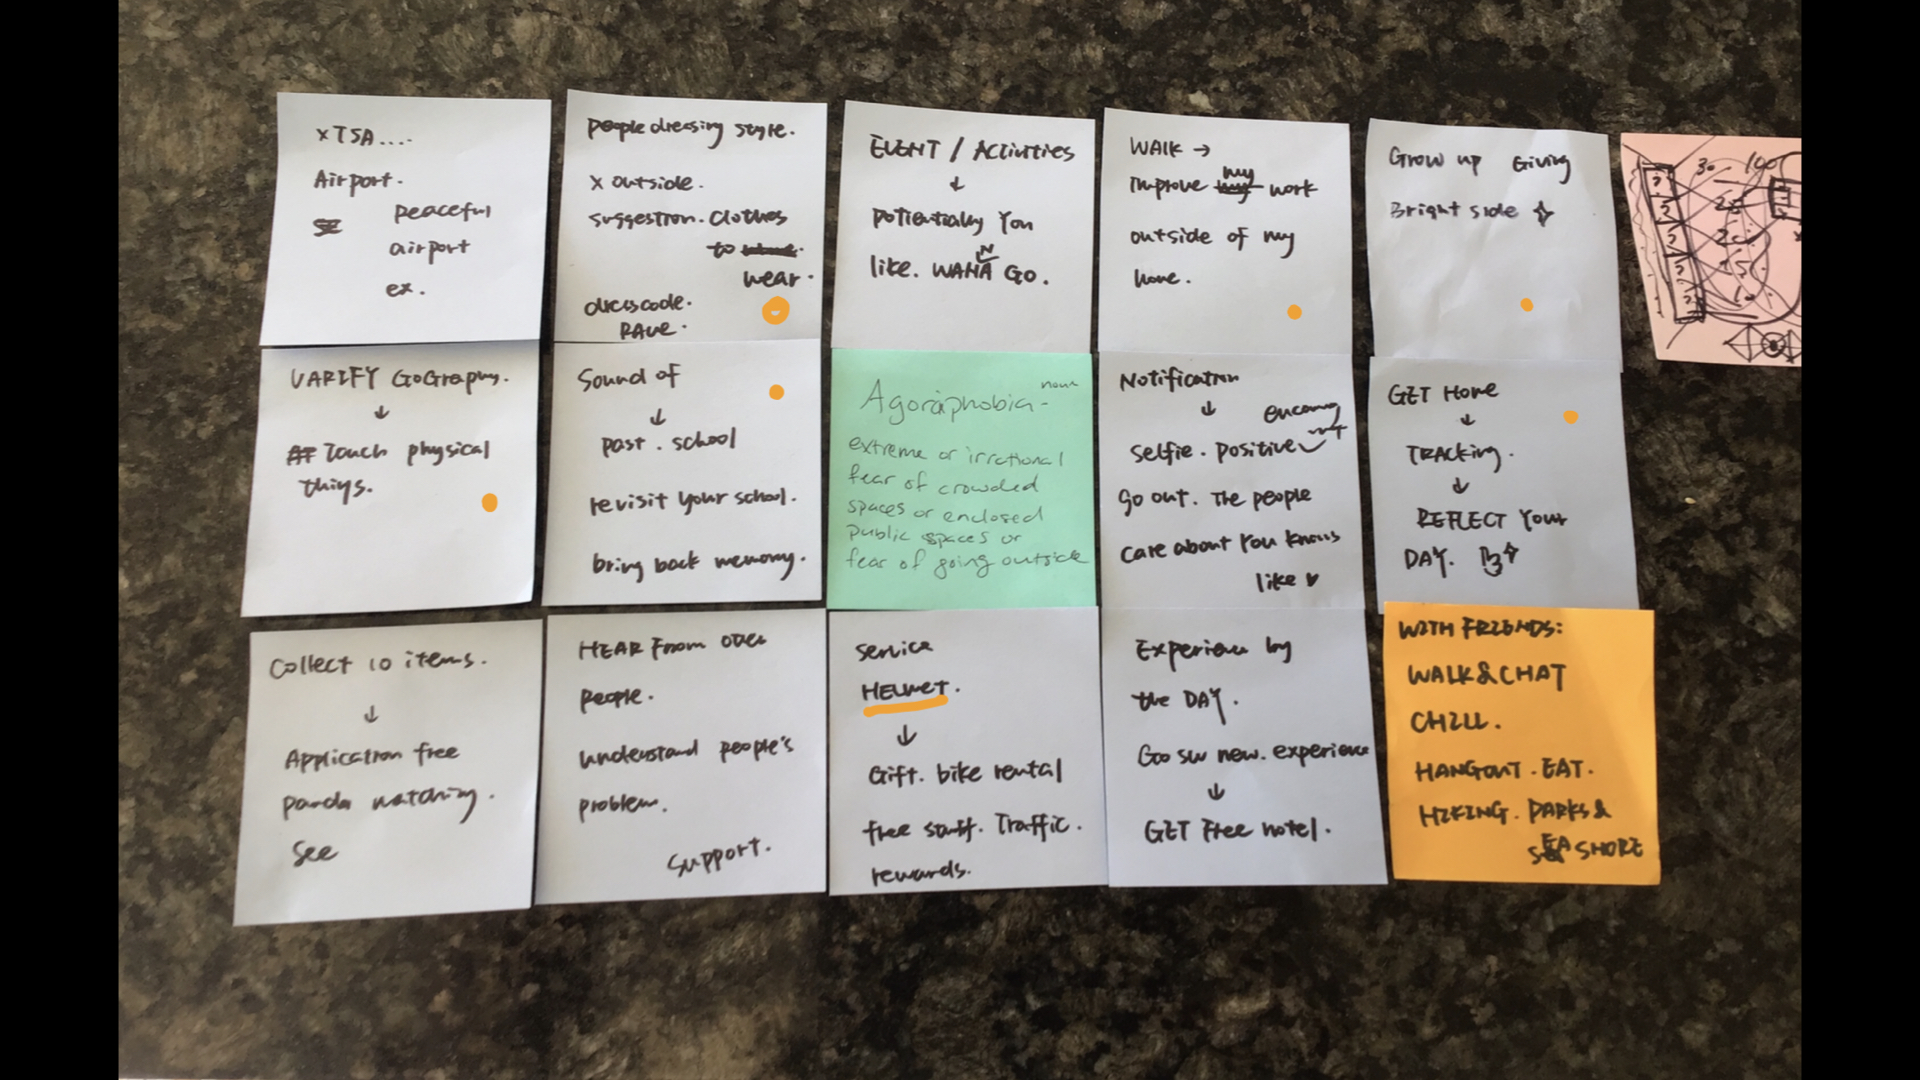 x TSA....
Airport.
peaceful
airport
ex.
people dressing style.
x outside.
suggestion. clothes
to
wear.
dresscode.
RAVE.
EVENT / Activities
↓
potientially you
like. WANNA GO.
WALK →
improve my work
outside of my
home.
Grow up Giving
Bright side
30 100
VARIFY GoGraphy.
↓
Touch physical
things.
Sound of
↓
past. school
revisit your school.
bring back memory.
Agoraphobia - noun
extreme or irrational
fear of crowded
spaces or enclosed
public spaces or
fear of going outside
Notification
↓
selfie. positive
go out. The people
care about you knows
like ♥
GET Home
↓
TRACKing.
↓
REFLECT Your
DAY.
Collect 10 items.
↓
Application free
panda watching.
See
HEAR From other
people.
understand people's
problem.
support.
service
HELMET.
↓
Gift. bike rental
free stuff. Traffic.
rewards.
Experience by
the DAY.
Goo new. experience
↓
GET Free hotel.
WITH FRIENDS:
WALK&CHAT
CHILL.
HANGOUT. EAT.
HIKING. PARKS &
SEA SHORE